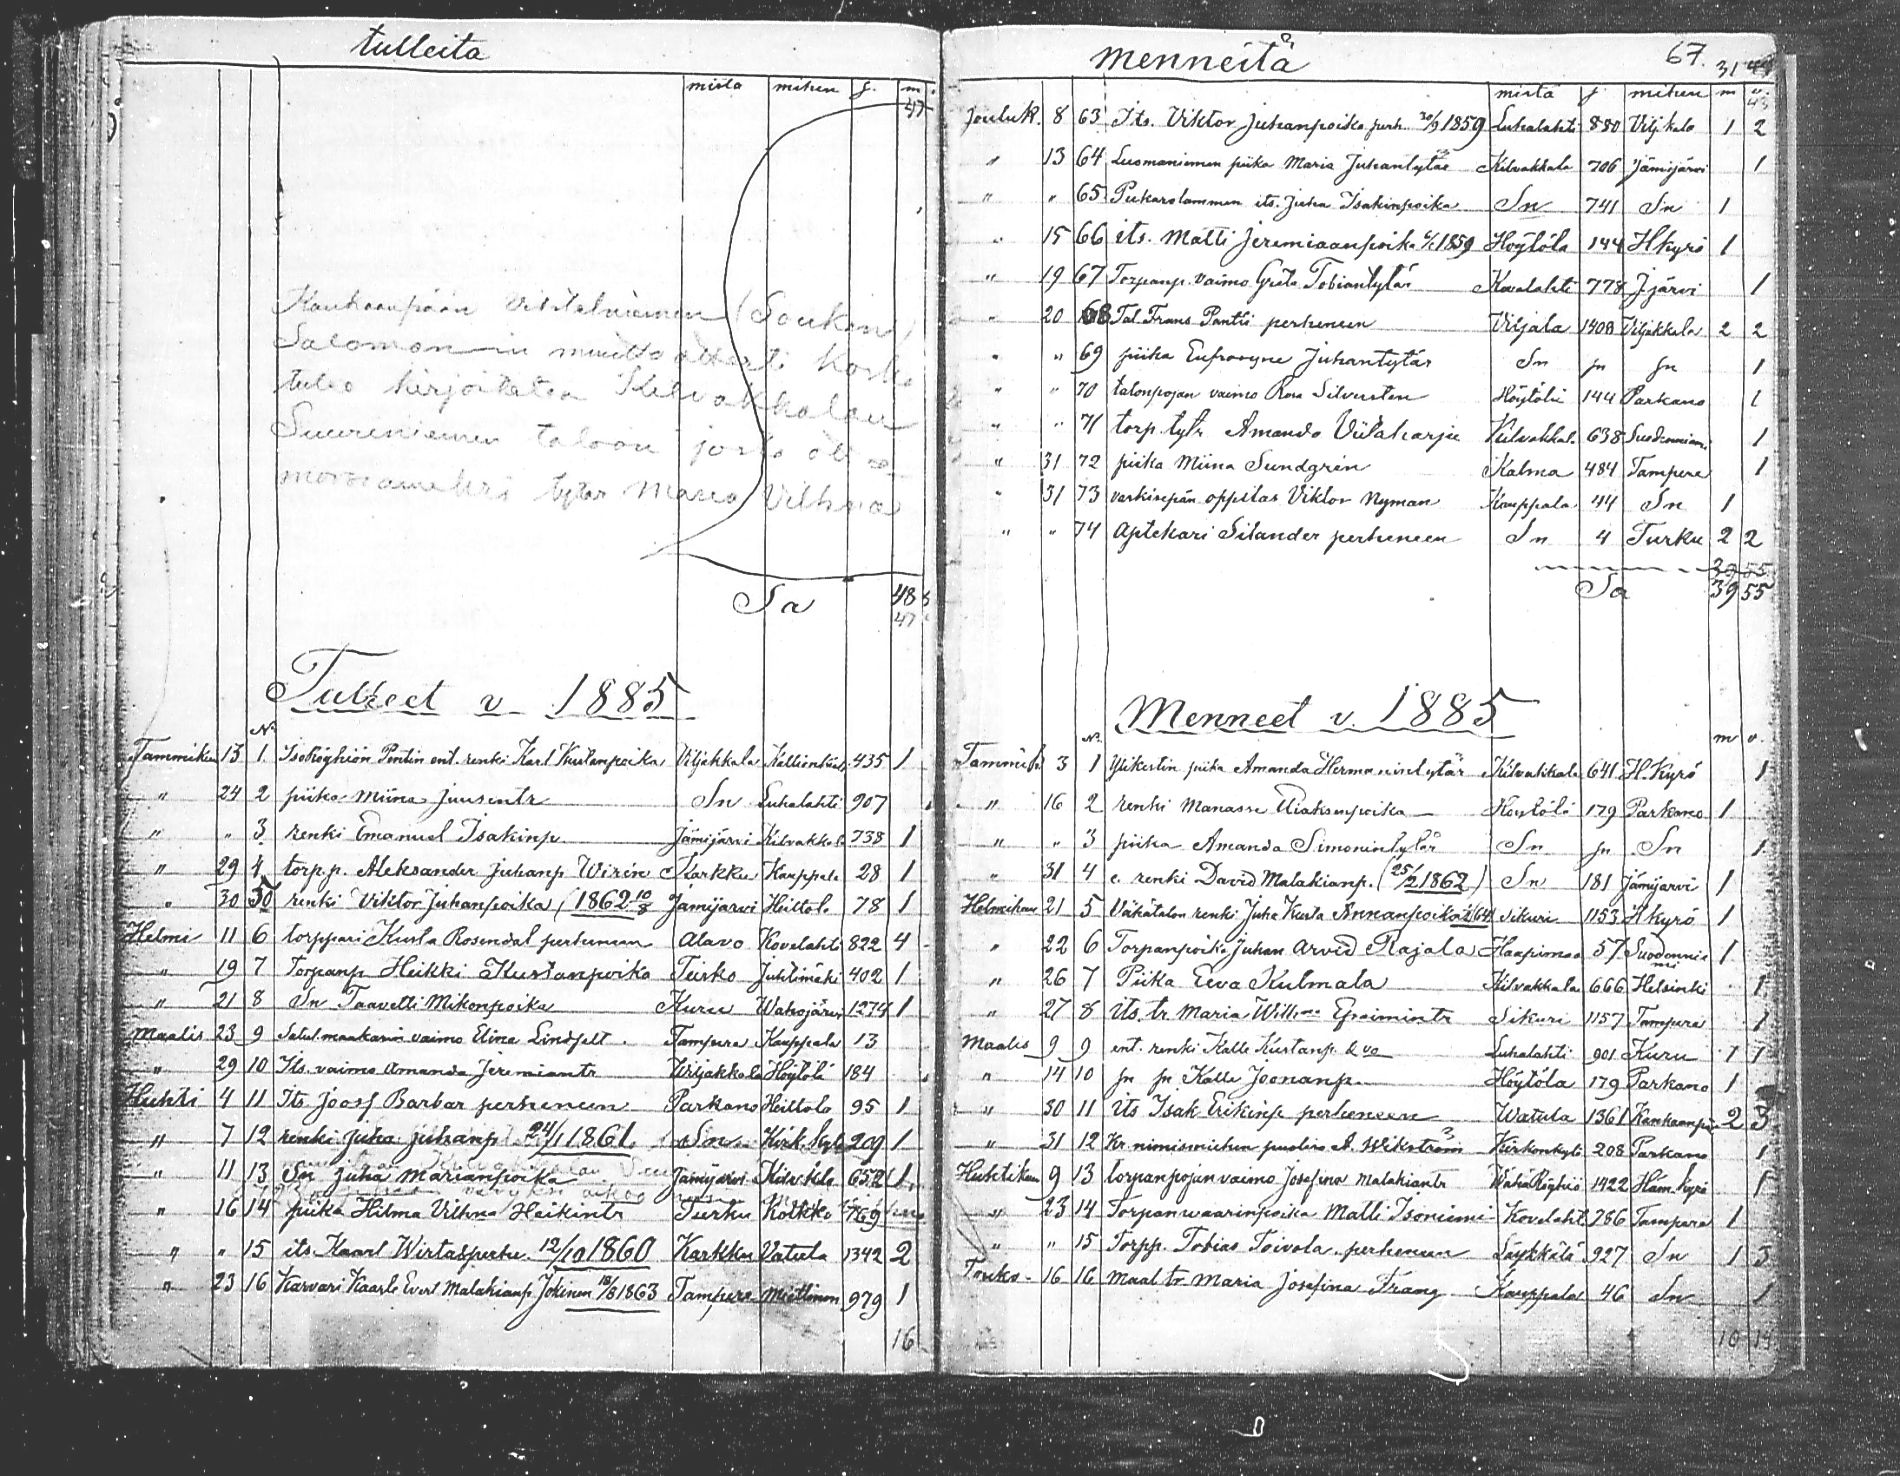 tulleita
mistä mihin s. m
47
Kankaanpään
Salomon in muutto attesti Koska
tulee kirjoitetaa Kilvakkalan
Suureniemen taloon josta oli
morsiameksi tytär Maria Vilhna
Sa 48 8
47
Tulleet v 1885
No
Tammikuu 13 1 Isoröyhiön Pentin ent. renki Karl Kustanpoika Viljakkala 435 1
" 24 2 piika Miina Juusentr Sn Luhalahti 907
" " 3 renki Emanuel Isakinp Jämijärvi Kilvakkala 738 1
" 29 4 torp.p. Aleksander Juhanp Wirén Karkku Kauppala 28 1
" 30 5 renki Viktor Juhanpoika (1862 10/8 Jämijärvi Heittola 78 1
Helmi 11 6 torppari Kusta Rosendal perheineen Alavo Kovelahti 822 4
" 19 7 Torpanp Heikki Kustanpoika Teisko Juhtimäki 402 1
" 21 8 Sn Taavetti Mikonpoika Kuru Wahojärvi 1274 1
Maalis 23 9 Satulmaakarin vaimo Elina Lindfelt Tampere Kauppala 13
" 29 10 Its. vaimo Amanda Jeremiantr Viljakkala Höytölä 184
Huhti 4 11 Its Joosf Barbar perheineen Parkano Heittola 95 1
" 7 12 renki Juha Juhanp 24/1 1861 Sn Kirk.kylä 209 1
" 11 13 Sn Juha Marianpoika Jämijärvi Kilvakkala 652 1
" 16 14 piika Hilma Vilhna Heikintr Turku 769
" " 15 its. Kaarl Wirta perhe. 12/10 1860 Karkku Vatula 1342 2
" 23 16 Karvari Kaarle Evert Malakianp Jokinen 18/8 1863 Tampere Miettinen 979 1
16
menneitä 67.
31
mistä s. mihin m v.
43
Jouluk. 8 63 Its. Viktor Juhanpoika perh. 20/9 1859 Luhalahti 880 Vilj.kala 1 2
" 13 64 Luomaniemen piika Maria Juhantytär Kilvakkala 706 Jämijärvi 1
" " 65 Pukaralammen its. Juha Isakinpoika Sn 741 Sn 1
" 15 66 its. Matti Jeremiaanpoika 1859 Höytölä 144 Hkyrö 1
" 19 67 Torpanp. vaimo Greta Tobiantytär Kovelahti 778 J.järvi 1
" 20 68 Tal. Frans Pentti perheineen Viljala 1408 Viljakkala 2 2
" " 69 piika Eufrosyne Juhantytär Sn sn sn 1
" " 70 talonpojan vaimo Rosa Silversten Höytölä 144 Parkano 1
" " 71 torp. tytr Amanda Viitaharju Kilvakkal. 638 Suodenniemi 1
" 31 72 piika Miina Sundgrén Kalma 484 Tampere 1
" 31 73 vaskisepän oppilas Viktor Nyman Kauppala 44 Sn 1
" " 74 Aptekari Silander perheineen Sn 4 Turku 2 2
39 55
Sa 39 55
Menneet v. 1885
No. m v.
Tammik. 3 1 Ylikestin piika Amanda Hermanintytär Kilvakkala 641 H.Kyrö 1
" 16 2 renki Manasse Höytölä 179 Parkano 1
" " 3 piika Amanda Simonintytär Sn sn Sn 1
" 31 4 e. renki David Malakianp. (25/2 1862) Sn 181 Jämijärvi 1
Helmikuu 21 5 Vähätalon renki Juha Kusta Annanpoika Sikuri 1153 Hkyrö 1
" 22 6 Torpanpoika Juhan Arvid Rajala Haapimaa 57 Suodenniemi 1
" 26 7 Piika Eeva Kulmala Kilvakkala 666 Helsinki 1
" 27 8 its. tr. Maria Willma Efraimintr Sikuri 1157 Tampere 1
Maalis 9 9 ent. renki Kalle Kustanp. & vo Luhalahti 901 Kuru 1 1
" 14 10 sn sn Kalle Joonanp. Höytölä 179 Parkano 1
" 30 11 its Isak Erikinp perheineen Watula 1361 Kankaanpää 2 3
" 31 12 Kr. nimismiehen puoliso A. Wikström Kirkonkylä 208 Parkano 1
Huhtikuu 9 13 torpanpojan vaimo Josefina Malakiantr Wähä Röyhiö 1422 Häm.kyrö 1
" 23 14 Torpanvaarinpoika Matti Isoniemi Kovelahti 786 Tampere 1
" " 15 Torpp. Tobias Toivola perheineen Läykkälä 927 Sn 1 3
Touko 16 16 maal tr Maria Josefina Frang Kauppala 46 Sn 1
10 14